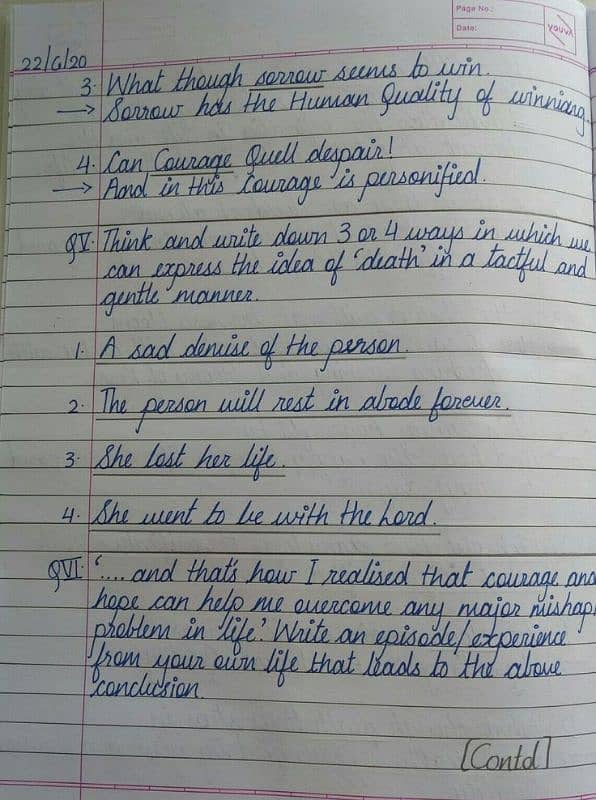 Page No.:
Date:
youva
22/6/20
3. What though sorrow seems to win.
→ Sorrow has the Human Quality of winniang.
4. Can Courage Quell despair!
→ And in this Courage is personified.
QV. Think and write down 3 or 4 ways in which we
can express the idea of 'death' in a tactful and
gentle manner.
1. A sad demise of the person.
2. The person will rest in abode forever.
3. She lost her life.
4. She went to be with the Lord.
QVI. '.... and that's how I realised that courage and
hope can help me overcome any major mishap/
problem in life.' Write an episode/experience
from your own life that leads to the above
conclusion.
[Contd]